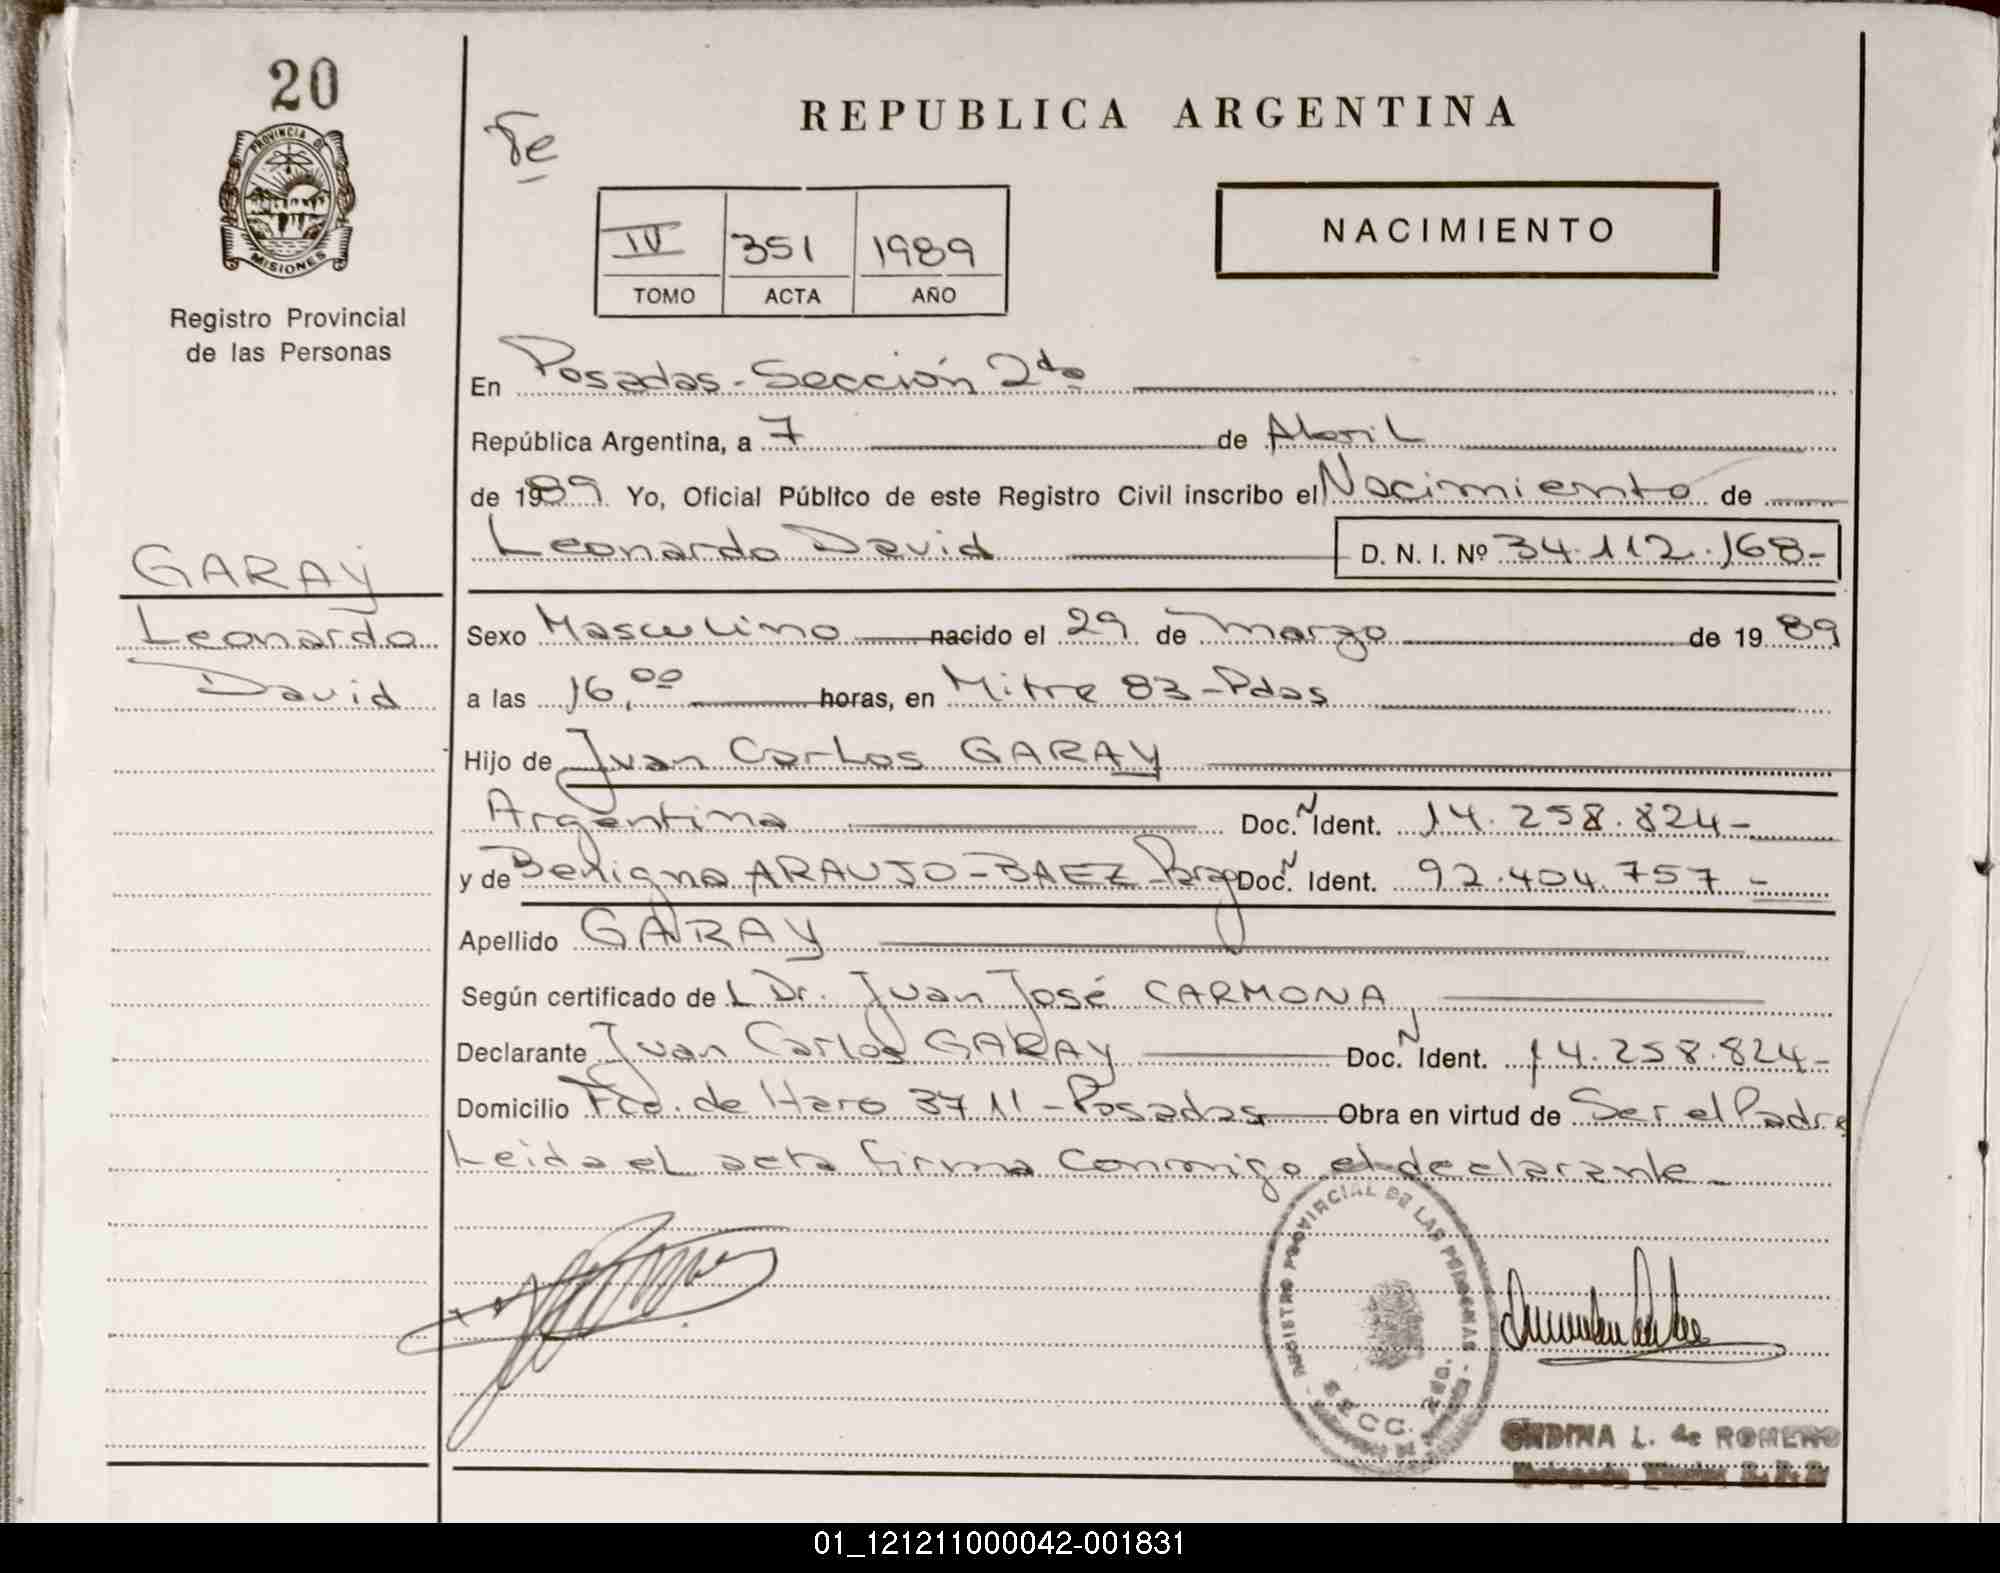 20
PROVINCIA DE
MISIONES
Registro Provincial
de las Personas
GARAY
Leonardo
David
REPUBLICA ARGENTINA
NACIMIENTO
IV 351 1989
TOMO ACTA AÑO
En Posadas - Sección 2da
República Argentina, a 7 de Abril
de 1989. Yo, Oficial Público de este Registro Civil inscribo el Nacimiento de
Leonardo David D. N. I. Nº 34.112.168-
Sexo Masculino nacido el 29 de marzo de 1989
a las 16,00 horas, en Mitre 83 - Pdas
Hijo de Juan Carlos GARAY
Argentina Doc. N Ident. 14.258.824-
y de Benigna ARAUJO - BAEZ - Parag Doc. N Ident. 92.404.757-
Apellido GARAY
Según certificado del Dr. Juan José CARMONA
Declarante Juan Carlos GARAY Doc. N Ident. 14.258.824-
Domicilio Fco. de Haro 3711 - Posadas Obra en virtud de Ser el Padre
Leida el acta firma conmigo el declarante -
REGISTRO PROVINCIAL DE LAS PERSONAS
SECC. 2da.
ONDINA L. de ROMERO
01_121211000042-001831